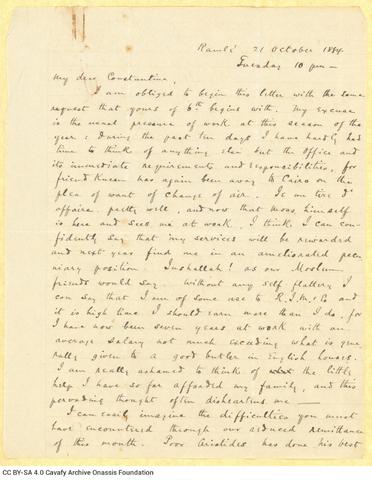 Ramlé 21 October 1884.
Tuesday 10 pm –
My dear Constantine,
I am obliged to begin this letter with the same
request that yours of 6th begins with. My excuse
is the usual pressure of work at this season of the
year: during the past ten days I have hardly had
time to think of anything else but the Office and
its immediate requirements and responsibilities, for
friend has again been away to Cairo on the
plea of want of change of air. Je me tire d'
affaire, pretty well, and now that Moss himself
is here and sees me at work, I think I can con-
fidently say that my services will be rewarded
and next year find me in an ameliorated pecu-
niary position. Inshallah! as our Moslem
friends would say. Without any self flattery I
can say that I am of some use to R.J.M. & Co and
it is high time I should earn more than I do, for
I have now been seven years at work with an
average salary not much exceeding what is gene-
rally given to a good butler in English houses.
I am really ashamed to think of the little
help I have so far afforded my family, and this
pervading thought often disheartens me —
I can easily imagine the difficulties you must
have encountered through our reduced remittance
of this month. Poor Aristides has done his best
CC BY-SA 4.0 Cavafy Archive Onassis Foundation